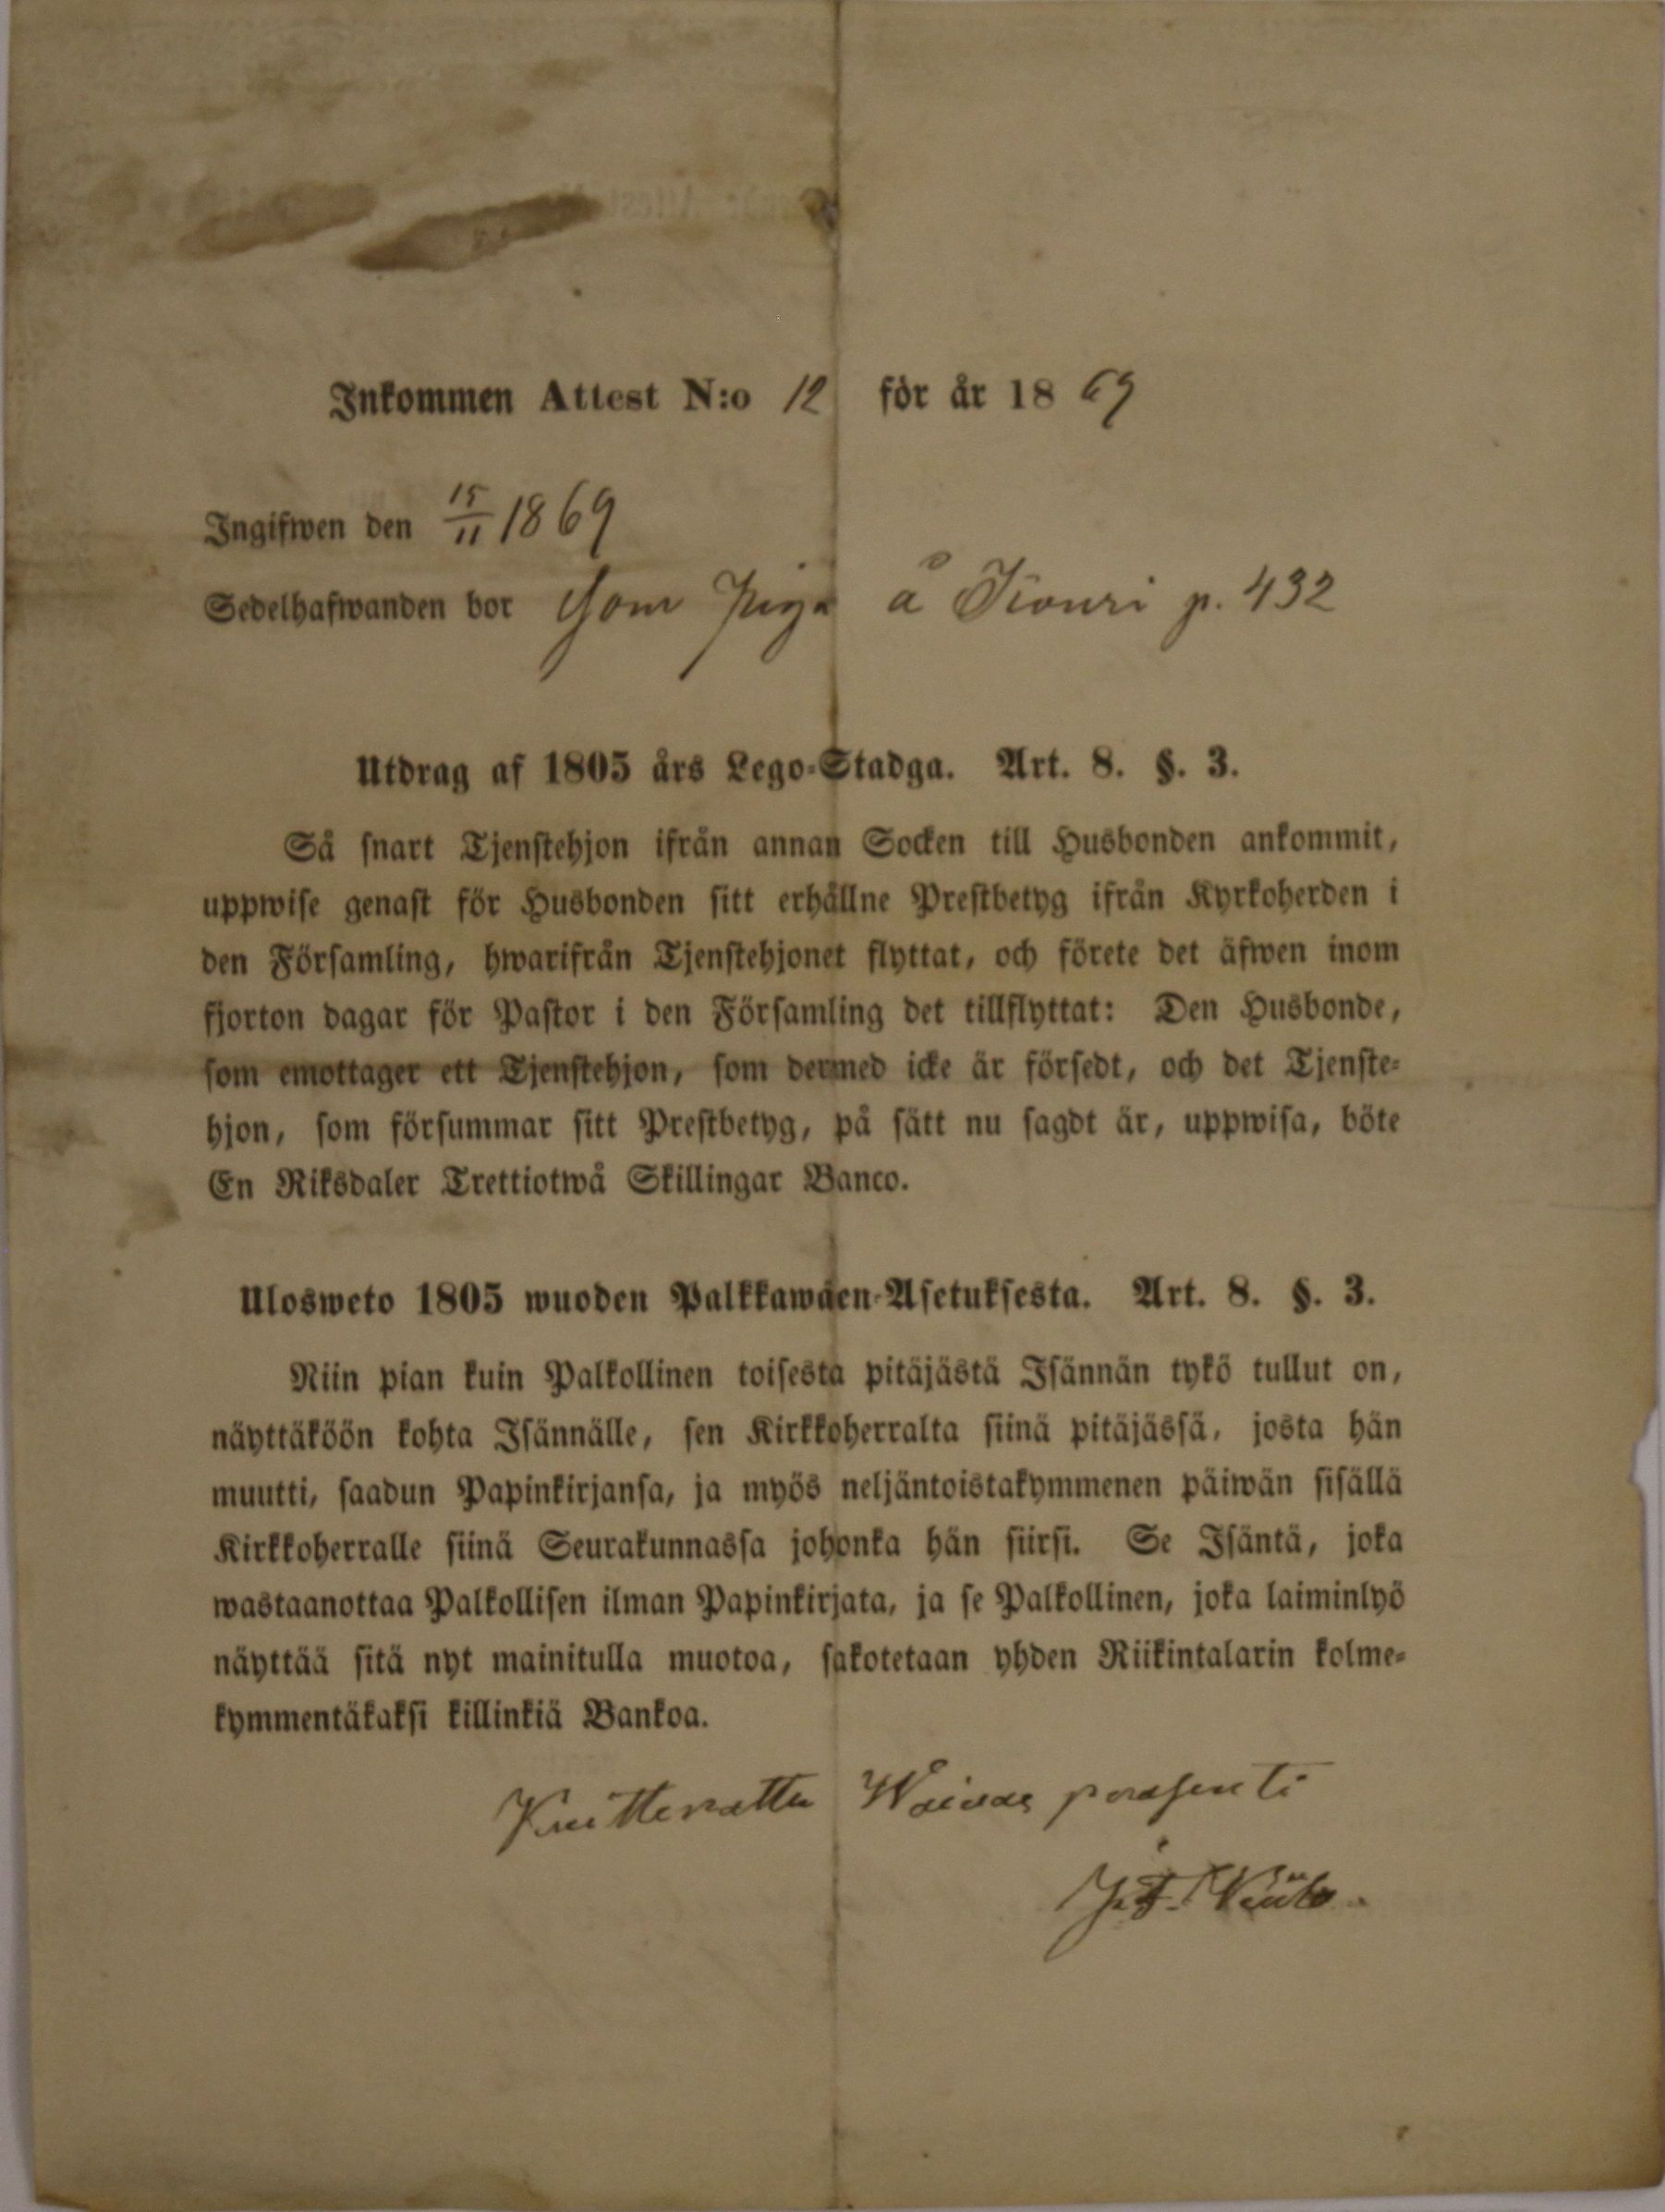 Inkommen Attest N:o 12 för år 1869
Ingifwen den 15/11 1869
Sedelhafwanden bor Som Piga å Kouri p. 432
Utdrag af 1805 års Lego-Stadga. Art. 8. §. 3.
Så snart Tjenstehjon ifrån annan Socken till Husbonden ankommit,
uppwise genast för Husbonden sitt erhållne Prestbetyg ifrån Kyrkoherden i
den Församling, hwarifrån Tjenstehjonet flyttat, och förete det äfwen inom
fjorton dagar för Pastor i den Församling det tillflyttat: Den Husbonde,
som emottager ett Tjenstehjon, som dermed icke är försedt, och det Tjenste-
hjon, som försummar sitt Prestbetyg, på sätt nu sagdt är, uppwisa, böte
En Riksdaler Trettiotwå Skillingar Banco.
Ulosweto 1805 wuoden Palkkawäen-Asetuksesta. Art. 8. §. 3.
Niin pian kuin Palkollinen toisesta pitäjästä Isännän tykö tullut on,
näyttäköön kohta Isännälle, sen Kirkkoherralta siinä pitäjässä, josta hän
muutti, saadun Papinkirjansa, ja myös neljäntoistakymmenen päiwän sisällä
Kirkkoherralle siinä Seurakunnassa johonka hän siirsi. Se Isäntä, joka
wastaanottaa Palkollisen ilman Papinkirjata, ja se Palkollinen, joka laiminlyö
näyttää sitä nyt mainitulla muotoa, sakotetaan yhden Riikintalarin kolme-
kymmentäkaksi killinkiä Bankoa.